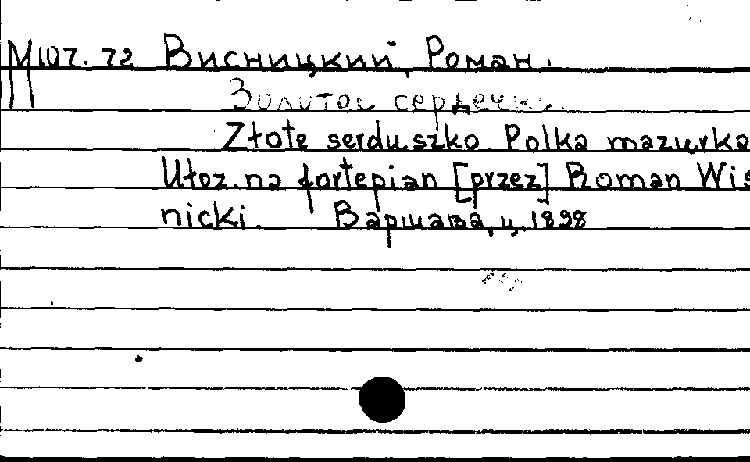 М107.72 Висницкий, Роман.
Золотое сердечко.
Złote serduszko Polka mazurka
Ułoż. na fortepian [przez] Roman Wiś
nicki. Варшава, ц. 1898